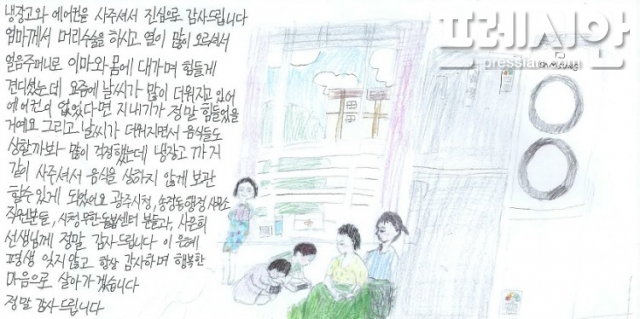 냉장고와 에어컨을 사주셔서 진심으로 감사드립니다
엄마께서 머리수술을 하시고 열이 많이 오르셔서
얼음주머니로 이마와 몸에 대가며 힘들게
견디셨는데 요즘에 날씨가 많이 더워지고 있어
에어컨이 없었다면 지내기가 정말 힘들었을
거예요 그리고 날씨가 더워지면서 음식들도
상할까봐 많이 걱정했는데 냉장고 까지
같이 사주셔서 음식을 상하지 않게 보관
할수 있게 되었어요 광주시청, 송정동행정
직원분들, 시청 무한돌봄센터 분들과, 사은희
선생님께 정말 감사드립니다 이 은혜
평생 잊지 않고 항상 감사하며 행복한
마음으로 살아가겠습니다
정말 감사드립니다
프레시안
pressian